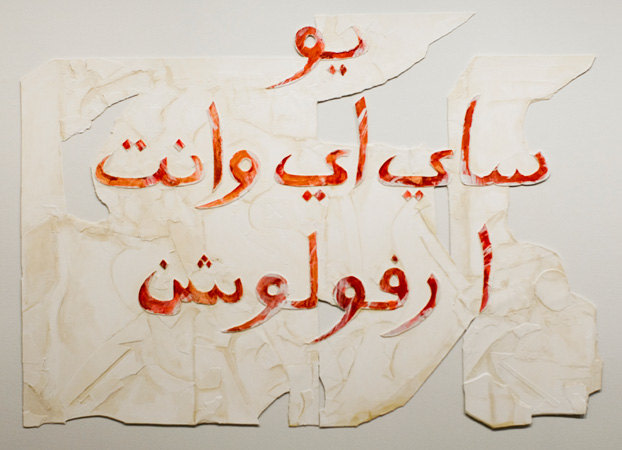 يو
ساي أي وانت
ا رفولوشن